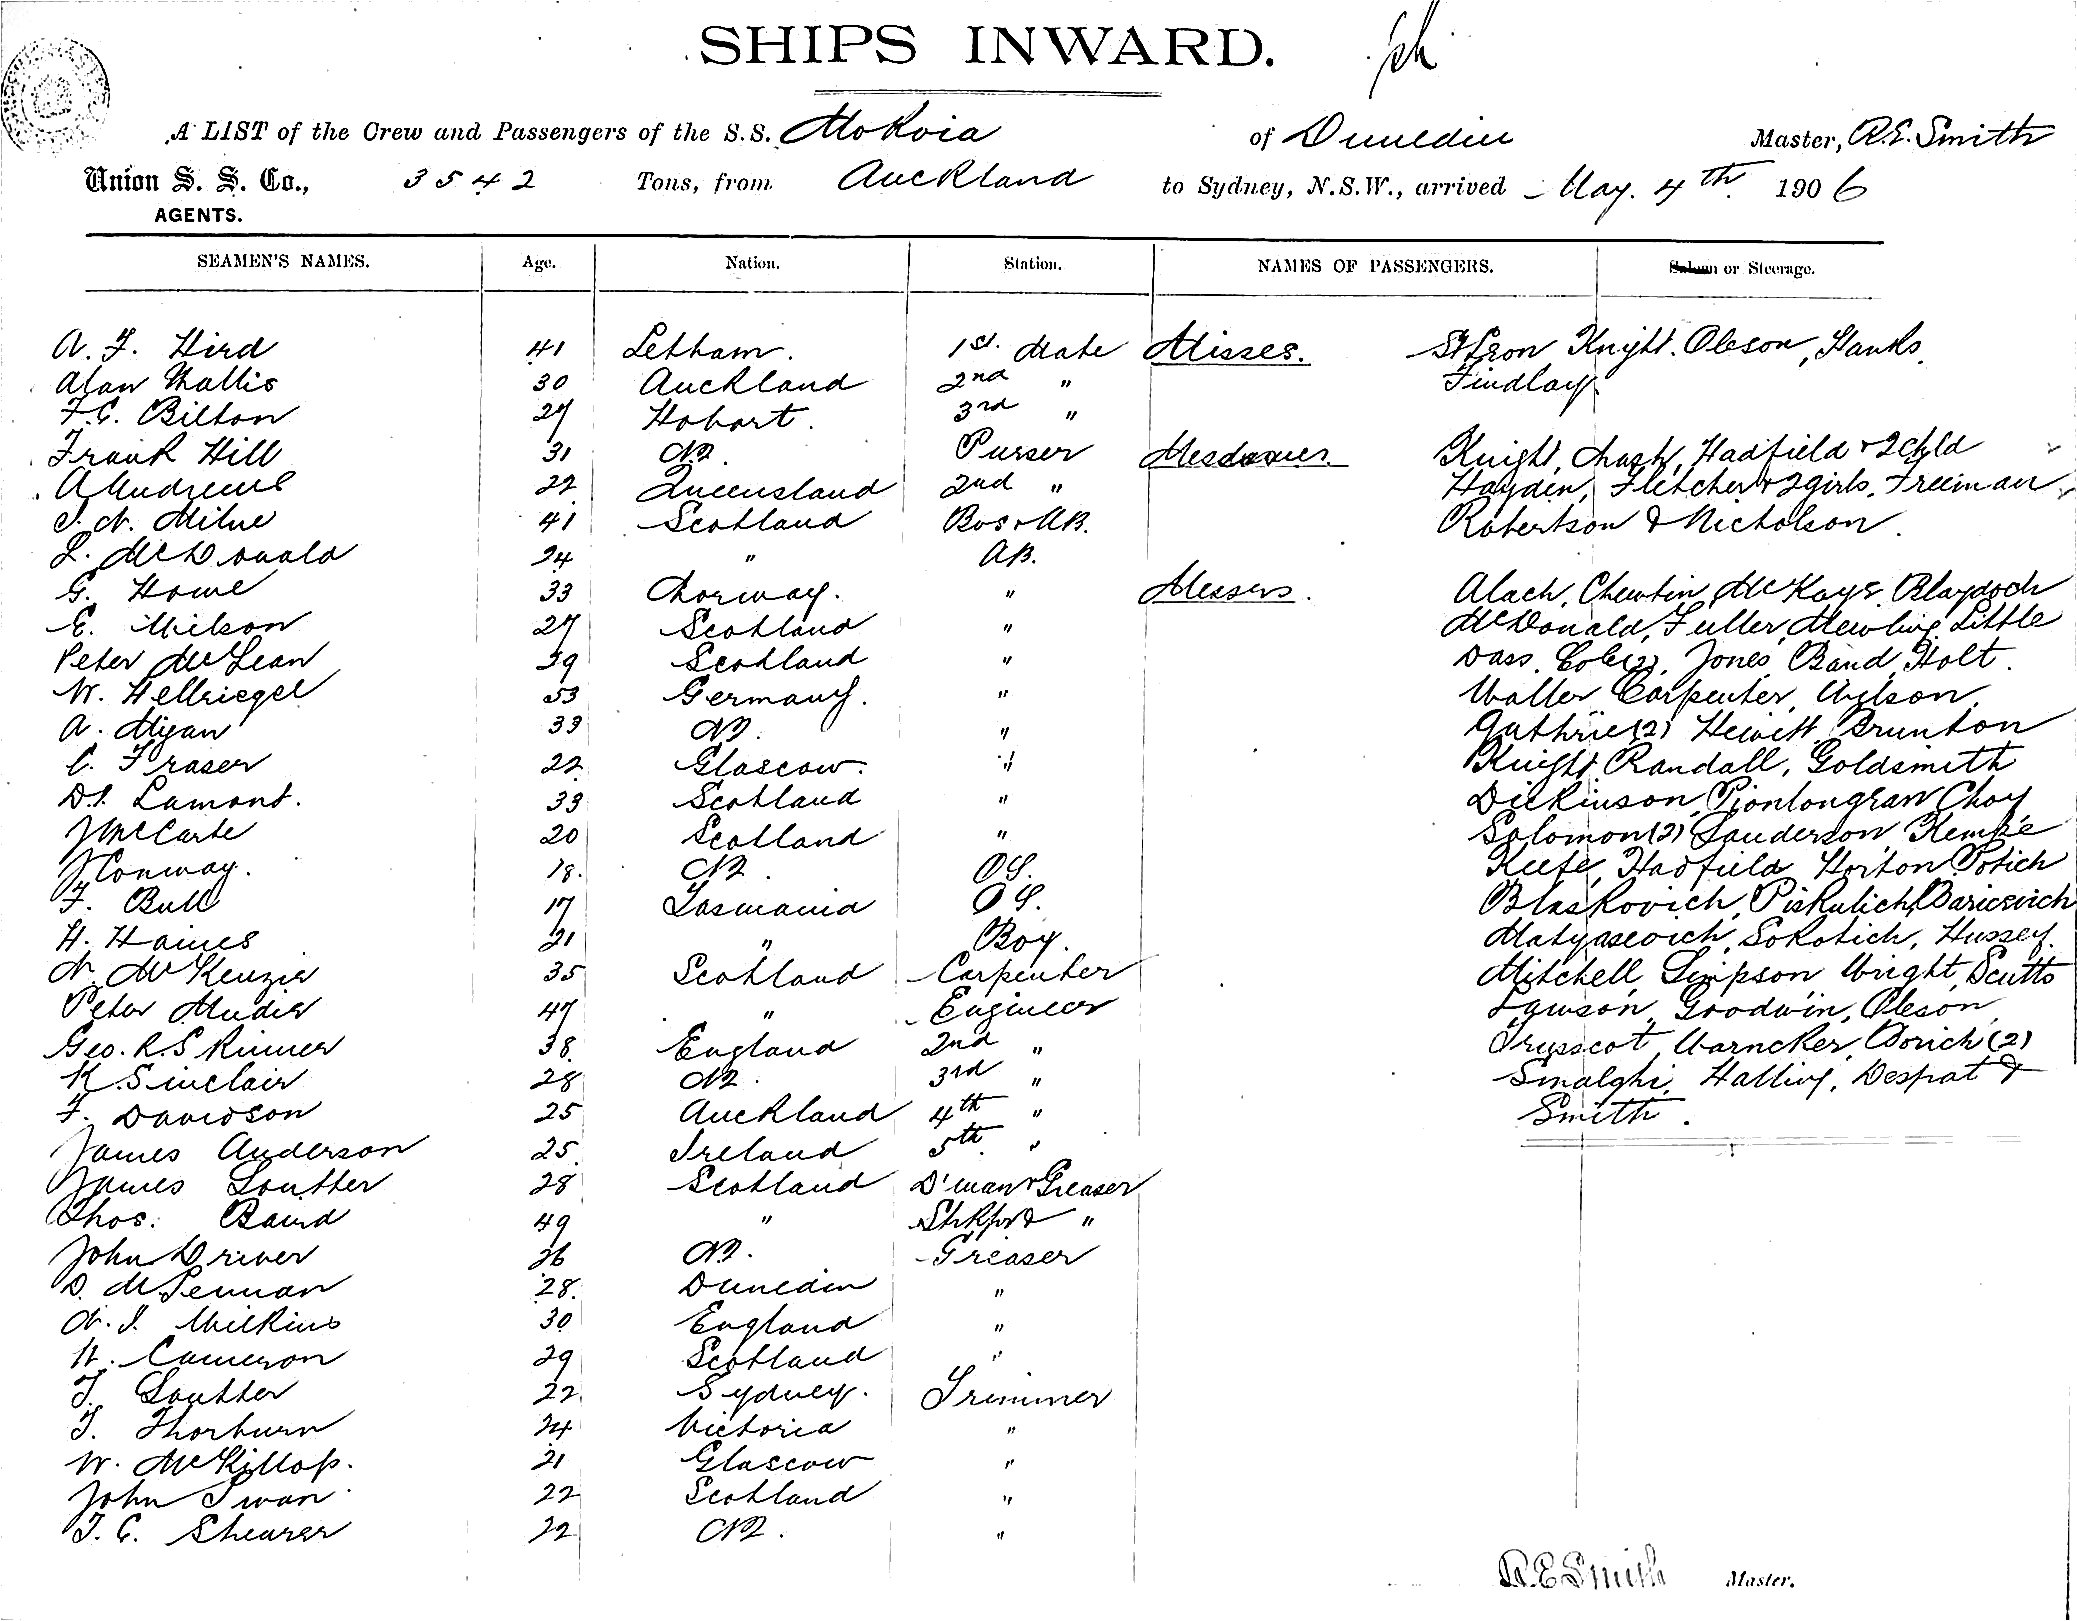 SHIPS INWARD.
A LIST of the Crew and Passengers of the S.S. Mokoia of Dunedin Master, R.E. Smith
Union S. S. Co., 3542 Tons, from Auckland to Sydney, N.S.W., arrived May. 4th 1906
AGENTS.
SEAMEN'S NAMES. Age. Nation. Station. NAMES OF PASSENGERS. Saloon or Steerage.
A. F. Hird 41 Letham. 1st. Mate Misses. Knight. Oleson, Hanks,
Alan Wallis 30 Auckland 2nd " Findlay.
F.C. Bilton 27 Hobart. 3rd "
Frank Hill 31 NZ. Purser Mesdames. Knight, Hadfield + 2 Chld
A Andrews 22 Queensland 2nd " Hayden, Fletcher + 2 girls, Freeman
Milne 41 Scotland Bos + AB. Robertson & Nicholson.
L. McDonald 24 " AB.
G. Howe 33 Norway. " Messrs. McKay
E. Wilson 27 Scotland " McDonald, Fuller, Little
Peter McLean 39 Scotland " Dass, Cole (2), Jones, Band, Holt.
W. Hellriegel 53 Germany. " Waller, Carpenter,
A. 33 NZ. " Guthrie (2) Hewitt, Brunton
C. Fraser 22 Glascow. " Knight, Randall, Goldsmith
Lamont. 33 Scotland " Dickinson, Choy
J McCarte 20 Scotland " Solomon (2) Sanderson
J Conway. 18. NZ. OS. Hadfield, Horton
F. Bull 17 Tasmania OS. Blaskovich, Piskulich,
H. Haines 21 " Boy. Hussey.
N. McKenzie 35 Scotland Carpenter Mitchell, Simpson, Wright, Scutts
Peter Mudie 47 " Engineer Lawson, Goodwin, Oleson,
Geo. R. Skinner 38 England 2nd " Dorich (2)
K. Sinclair 28 NZ. 3rd " &
F. Davidson 25 Auckland 4th " Smith.
James Anderson 25 Ireland 5th "
James Soutter 28 Scotland D'man + Greaser
Thos. Baird 49 " "
John Driver 26 NZ. Greaser
D. McLennan 28. Dunedin "
Wilkins 30 England "
H. Cameron 29 Scotland "
Soutter 22 Sydney. Trimmer
Thorburn 24 Victoria "
W. McKillop. 21 Glascow "
John Swan 22 Scotland "
C. Shearer 22 NZ. "
R.E Smith Master.